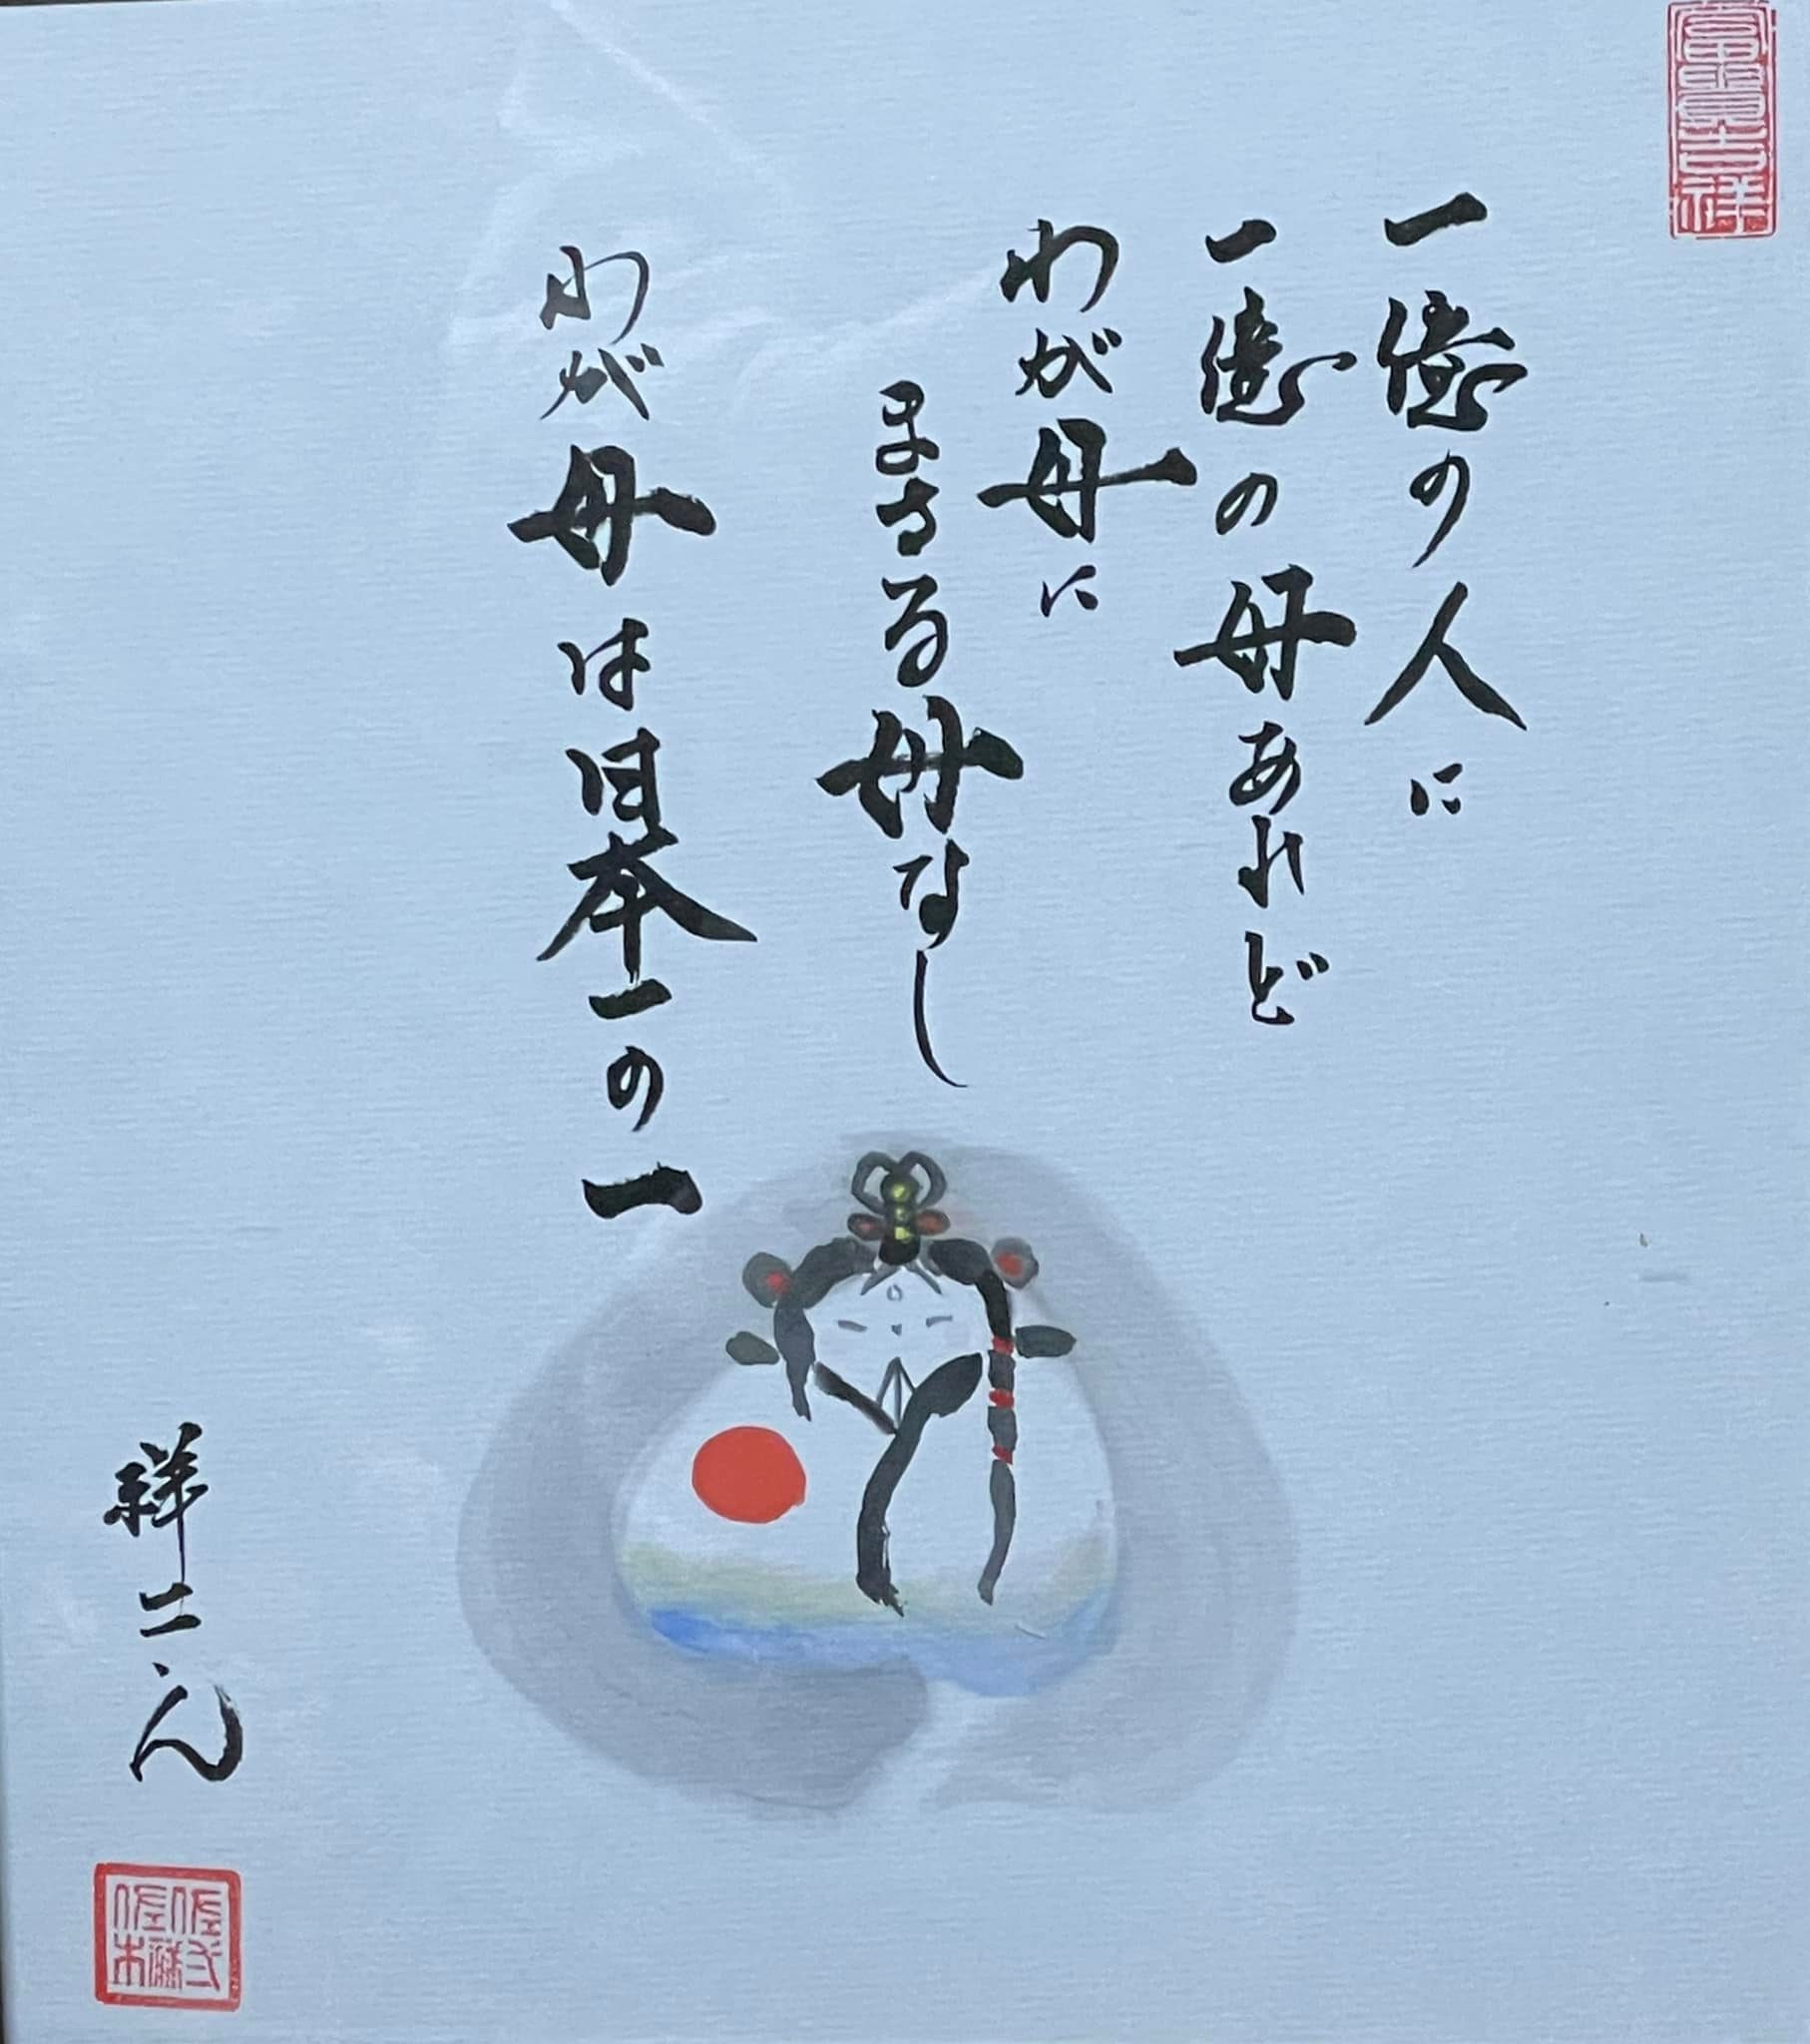 一億の人に
一億の母あれど
わが母に
まさる母なし
わが母は日本一の一
祥二